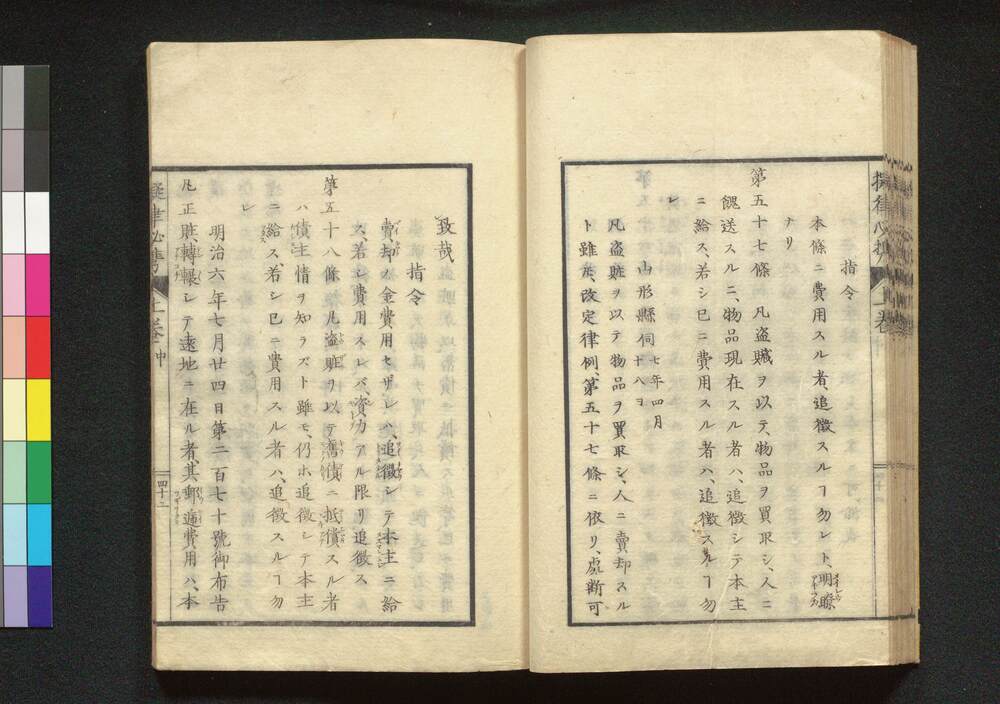 指令
本條ニ費用スル者、追徴スルヿ勿レト、明瞭
ナリ
第五十七條 凡盗贓ヲ以テ、物品ヲ買取シ、人ニ
餽送スルニ、物品現在スル者ハ、追徴シテ本主
ニ給ス、若シ已ニ費用スル者ハ、追徴スルヿ勿
レ
山形縣伺 七年四月
十八日
凡盗賍ヲ以テ物品ヲ買取シ、人ニ賣却スル
ト雖𪜈、改定律例、第五十七條ニ依リ、處斷可
致哉
指令
賣却ノ金費用セザレハ、追徴シテ本主ニ給
ス、若シ費用スレバ、資力アル限リ追徴ス
第五十八條 凡盗賍ヲ以テ、舊債ニ抵償スル者
ハ、債主情ヲ知ラズト雖モ、仍ホ追徴シテ本主
ニ給ス、若シ已ニ費用スル者ハ、追徴スルヿ勿
レ
明治六年七月廿四日第二百七十號御布告
凡正賍、轉帳シテ遠地ニ在ル者、其郵遞費用ハ、本
擬律必携 上巻 中
四十二